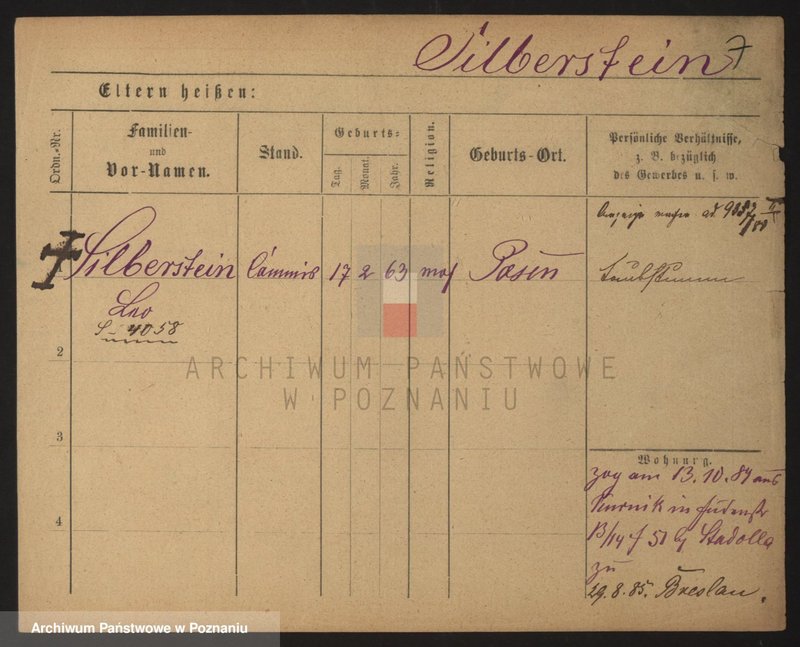 Silberstein 7
Eltern heißen:
Ordn.-Nr.
Familien-
und
Vor-Namen.
Stand.
Geburts-
Tag.
Monat.
Jahr.
Religion.
Geburts-Ort.
Persönliche Verhältnisse,
z. B. bezüglich
des Gewerbes u. s. w.
Silberstein
Leo
S. 4058
Commis
17
2
63
mos
Posen
Taubstumm
2
3
4
Wohnung.
zog am 13.10.84 aus
Kurnik in Judenstr
Stadolla
zu
29.8.85. Breslau.
ARCHIWUM PAŃSTWOWE
W POZNANIU
Archiwum Państwowe w Poznaniu